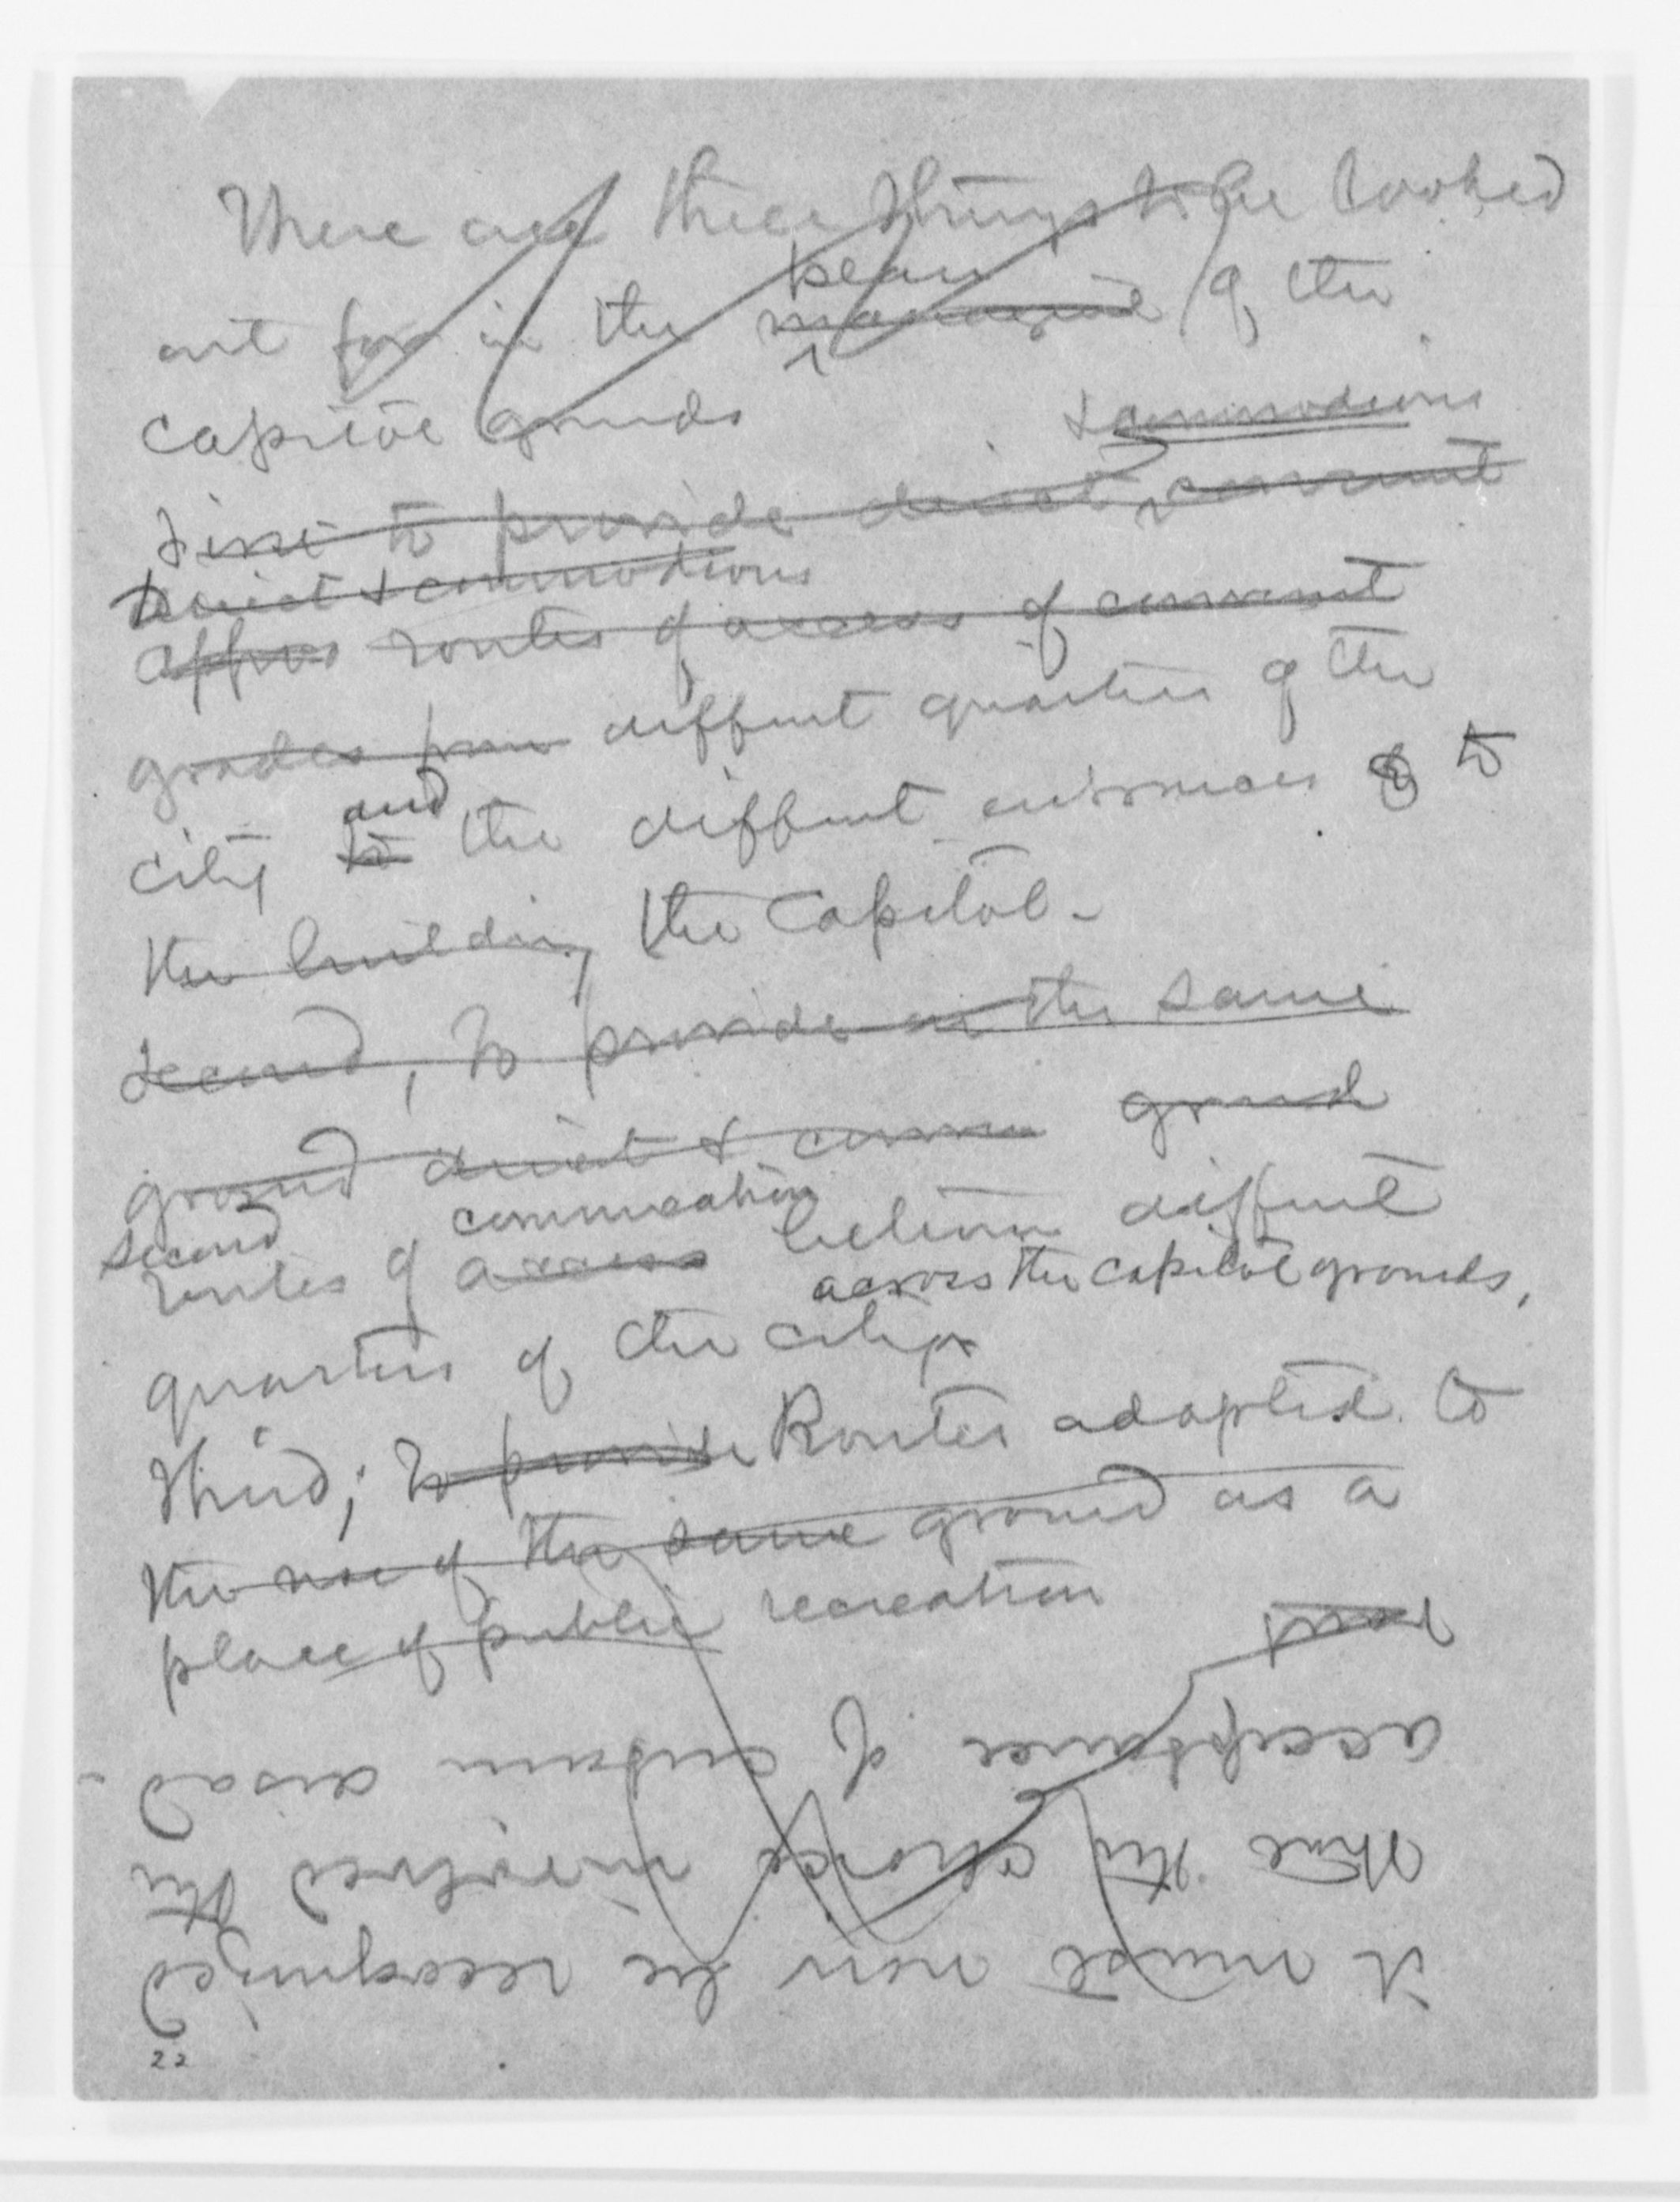 There are three things to be looked
plan
out for in the of the
Capitol grounds
& commodious
First to provide direct, convenient
Direct & commodious
approa routes of access of convenient
grades from different quarters of the
and
city to the different entrances to
the building the Capitol -
Second, to provide on the same
ground direct & conven ground
Second communication
routes of access between different
across the Capitol grounds,
quarters of the city
Third; to provide Routes adapted to
the use of the same ground as a
place of public recreation
it must now be recognized
there the choice involved the
acceptance of certain disad-
22